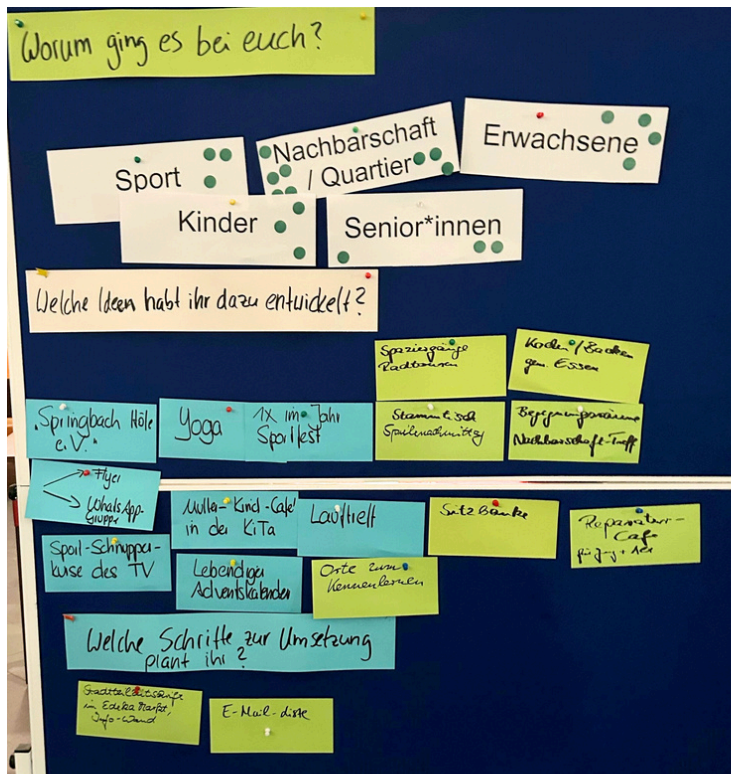 Worum ging es bei euch?
Sport
Nachbarschaft
/ Quartier
Erwachsene
Kinder
Senior*innen
Welche Ideen habt ihr dazu entwickelt?
Spaziergänge
Radtouren
Kochen / Backen
gem. Essen
"Springbach Höfe
e.V."
Yoga
1x im Jahr
Sportfest
Stammtisch
Spielenachmittag
Begegnungsräume
Nachbarschaft-Treff
Flyer
WhatsApp-
Gruppe
Mutter-Kind-Café
in der KiTa
Lauftreff
Sitzbänke
Reparatur-
Cafe
für Jung + Alt
Sport-Schnupper-
kurse des TV
Lebendiger
Adventskalender
Orte zum
Kennenlernen
Welche Schritte zur Umsetzung
plant ihr?
in Edeka Markt,
Info-Wand
E-Mail-Liste